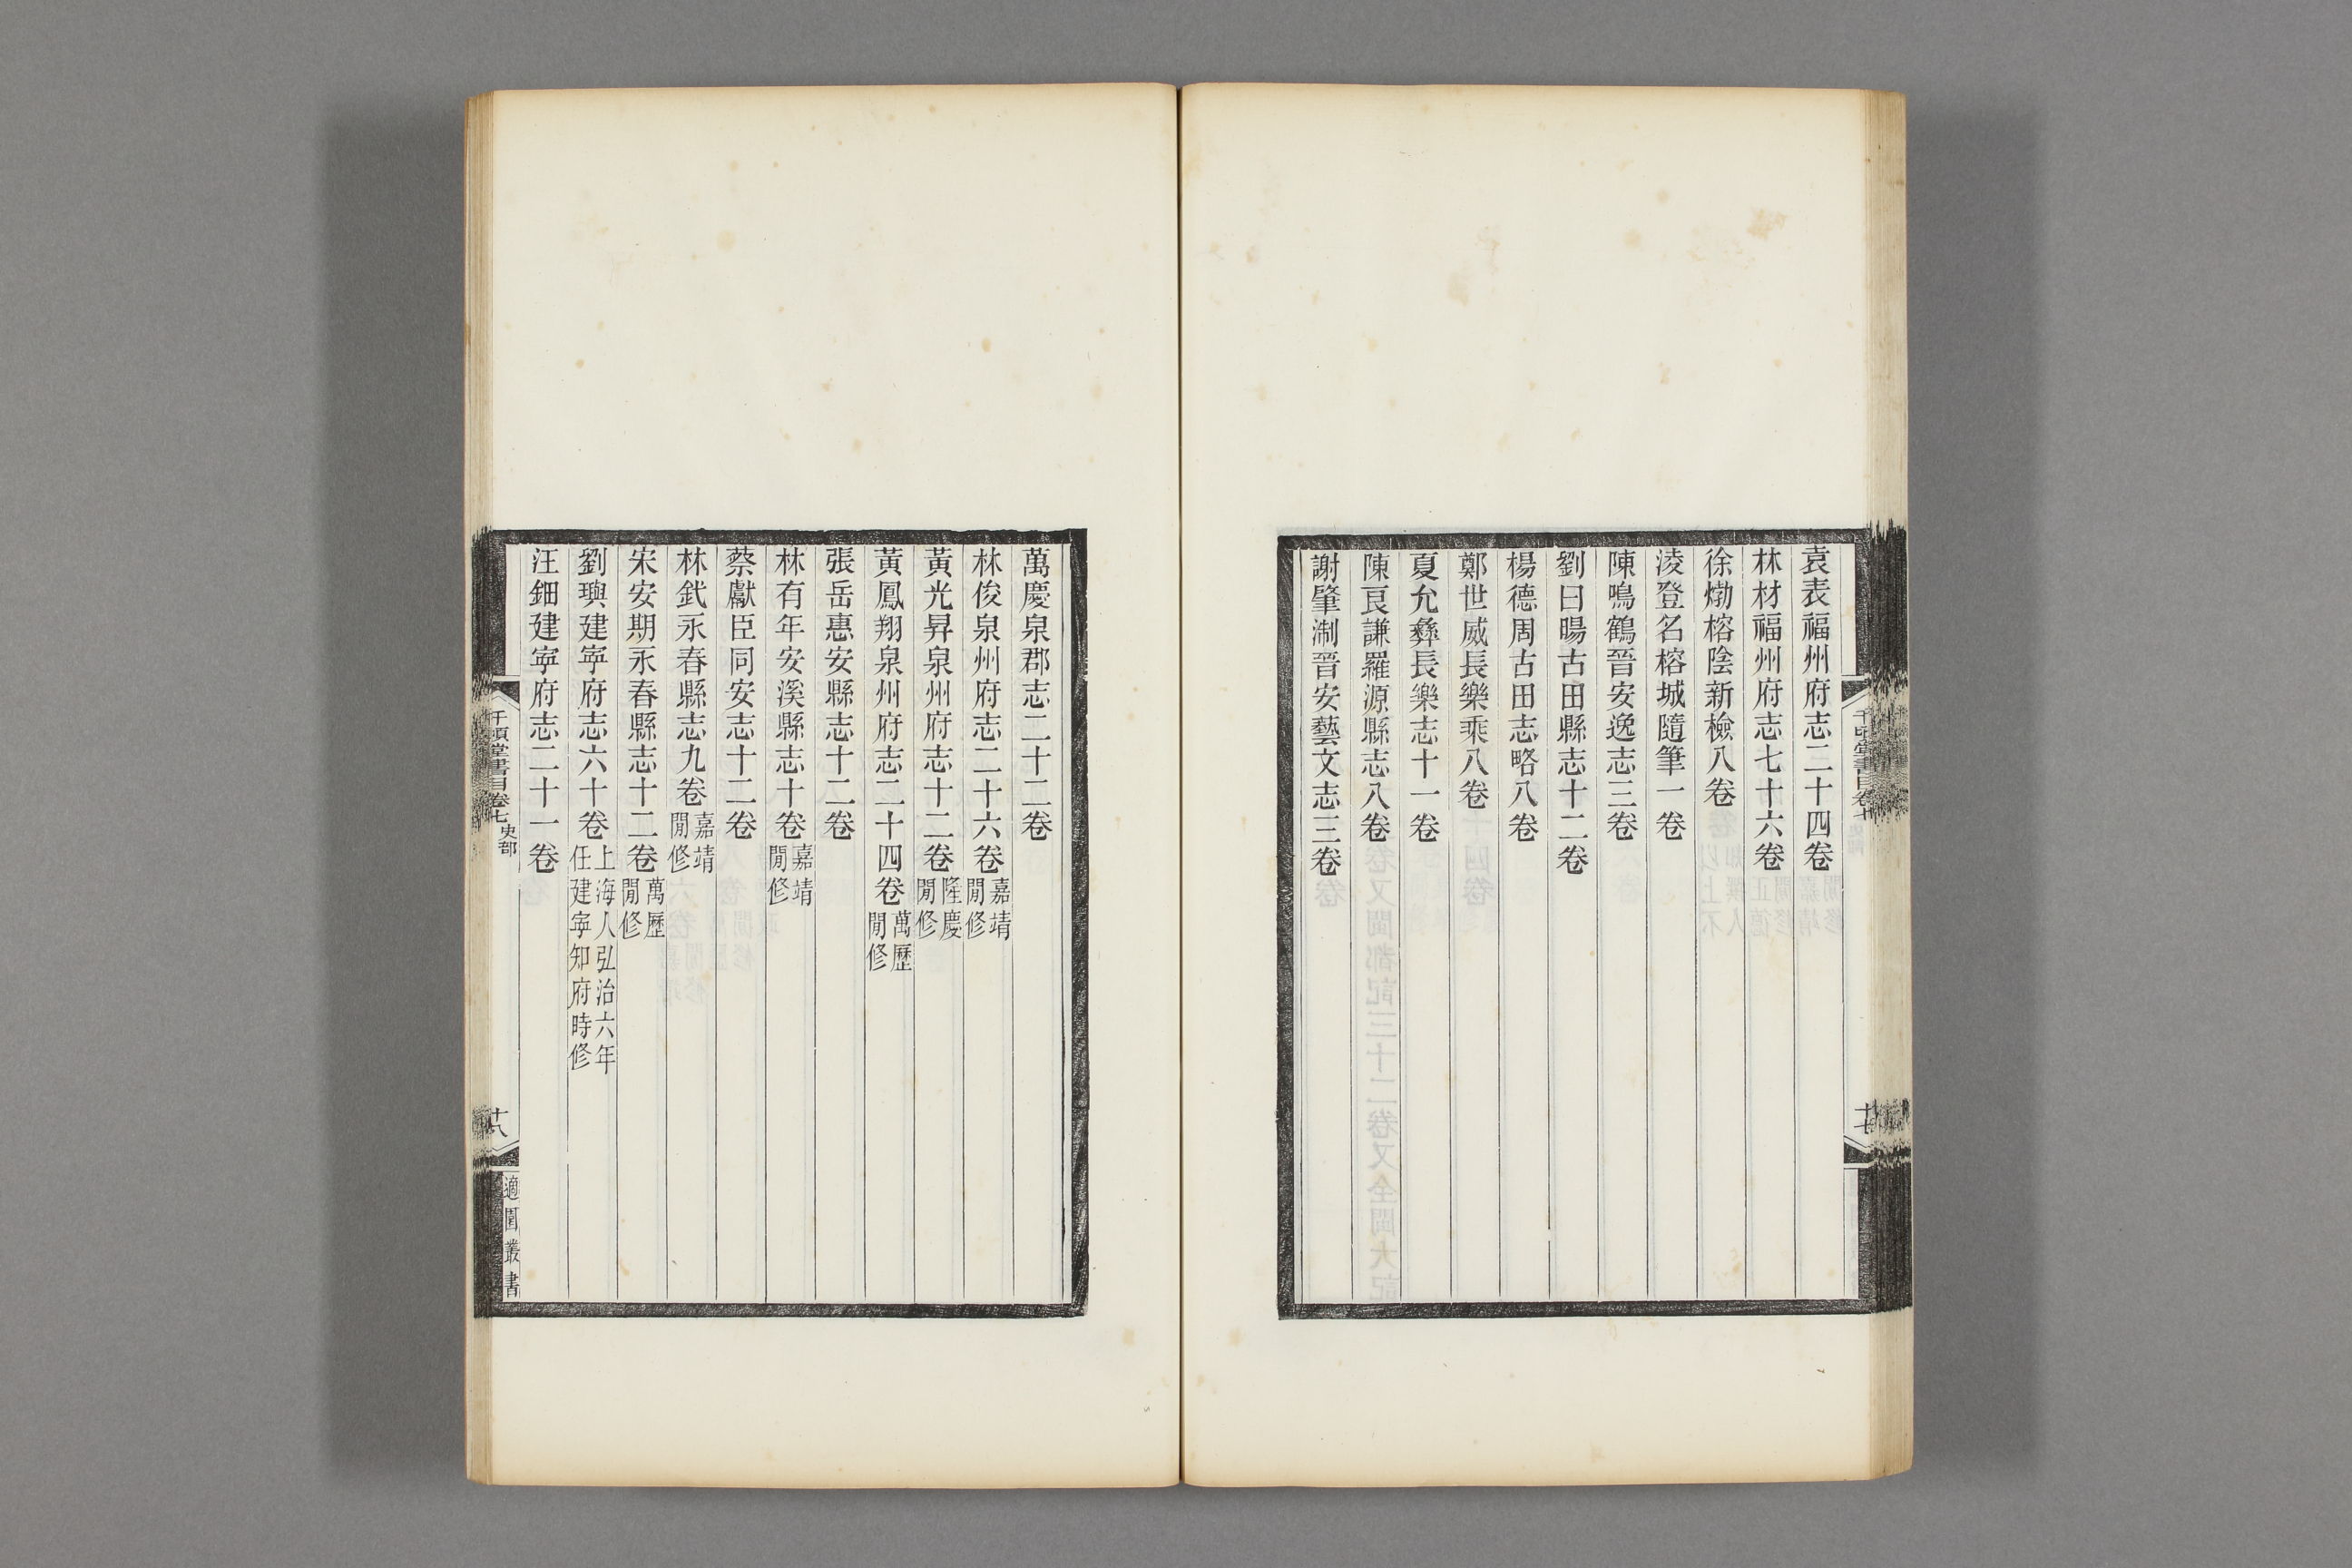 袁表福州府志二十四卷
林材福州府志七十六卷
徐𤊹榕陰新檢八卷
淩登名榕城隨筆一卷
陳鳴鶴晉安逸志三卷
劉日暘古田縣志十二卷
楊德周古田志略八卷
鄭世威長樂乘八卷
夏允彝長樂志十一卷
陳良謙羅源縣志八卷
謝肇淛晉安藝文志三卷
十七
萬慶泉郡志二十二卷
林俊泉州府志二十六卷嘉靖
閒修
黃光昇泉州府志十二卷隆慶
閒修
黃鳳翔泉州府志二十四卷萬歷
閒修
張岳惠安縣志十二卷
林有年安溪縣志十卷嘉靖
閒修
蔡獻臣同安志十二卷
林釴永春縣志九卷嘉靖
閒修
宋安期永春縣志十二卷萬歷
閒修
劉璵建寧府志六十卷上海人弘治六年
任建寧知府時修
汪鈿建寧府志二十一卷
千頃堂書目卷七史部
十八
適園叢書